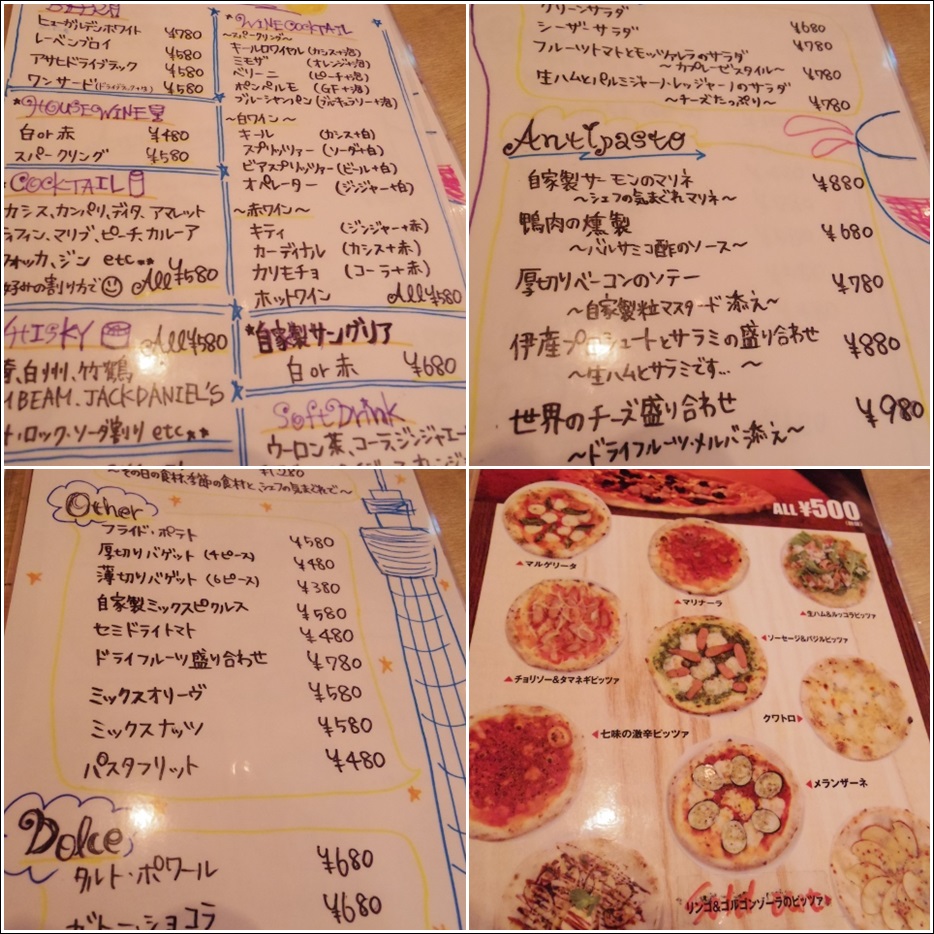 BEER
ヒューガルデンホワイト ¥780
レーベンブロイ ¥580
アサヒドライブラック ¥580
ワンサード(ドライブラック+生) ¥580
*HOUSEWINE
白or赤 ¥480
スパークリング ¥580
COCKTAIL
カシス、カンパリ、ディタ、アマレット
ティフィン、マリブ、ピーチ、カルーア
ウォッカ、ジン etc**
好みの割り方で All¥580
WHISKY All¥580
白州、竹鶴
BEAM、JACKDANIEL'S
ロック・ソーダ割り etc**
*WINECOCKTAIL
~スパークリング~
キールロワイヤル (カシス+泡)
ミモザ (オレンジ+泡)
ベリーニ (ピーチ+泡)
ポンパルモ (GF+泡)
ブルーシャンパン (ブルーキュラソー+泡)
~白ワイン~
キール (カシス+白)
スプリッツァー (ソーダ+白)
ビアスプリッツァー (ビール+白)
オペレーター (ジンジャー+白)
~赤ワイン~
キティ (ジンジャー+赤)
カーディナル (カシス+赤)
カリモチョ (コーラ+赤)
ホットワイン All¥580
*自家製サングリア
白or赤 ¥680
SoftDrink
ウーロン茶、コーラ、ジンジャエー
グリーンサラダ ¥680
シーザーサラダ ¥780
フルーツトマトとモッツァレラのサラダ
~カプレーゼスタイル~ ¥780
生ハムとパルミジャーノ・レッジャーノのサラダ
~チーズたっぷり~ ¥780
Antipasto
自家製サーモンのマリネ ¥880
~シェフの気まぐれマリネ~
鴨肉の燻製 ¥680
~バルサミコ酢のソース~
厚切りベーコンのソテー ¥780
~自家製粒マスタード添え~
伊産プロシュートとサラミの盛り合わせ ¥880
~生ハムとサラミです...~
世界のチーズ盛り合わせ ¥980
~ドライフルーツ・メルバ添え~
¥1,280
~その日の食材、季節の食材と、シェフの気まぐれで~
Other
フライド・ポテト ¥580
厚切りバゲット (4ピース) ¥480
薄切りバゲット (6ピース) ¥380
自家製ミックスピクルス ¥580
セミドライトマト ¥480
ドライフルーツ盛り合わせ ¥780
ミックスオリーヴ ¥580
ミックスナッツ ¥580
パスタフリット ¥480
Dolce
タルト・ポワール ¥680
ガトーショコラ ¥680
ALL ¥500
(税抜)
▲マルゲリータ
▲マリナーラ
▲生ハム&ルッコラピッツァ
▲チョリソー&タマネギピッツァ
◀ソーセージ&バジルピッツァ
クワトロ▶
◀七味の激辛ピッツァ
◀メランザーネ
リンゴ&ゴルゴンゾーラのピッツァ